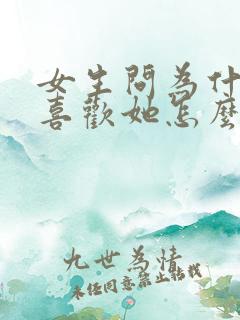 女生問為什
喜歡她怎麼
九世為情
未經同意禁止轉載